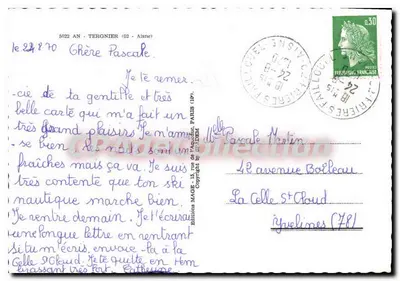 5022 AN - TERGNIER (02 - Aisne)
le 24870 Chère Pascale.
Je te remer-
cie de ta gentille et très
belle carte qui m'a fait un
très grand plaisirs Je m'amu
se bien les nuits sont un
fraîches mais ça va. Je suis
très contente que ton ski
nautique marche bien.
Je rentre demain. Je t'écrirai
une longue lettre en rentrant
si tu m'écris, envoie-la à la
Celle St Cloud. Je te quitte en t'em
brassant très fort. Catherine
Editions MAGE - 15, rue de l'Aqueduc, PARIS (10e)
Copyright by
0,30
REPUBLIQUE FRANCAISE
18 H 15
24 - 8
1970
AISNE
Melle Pascale
42 avenue Boileau
La Celle St Cloud
Yvelines (78)